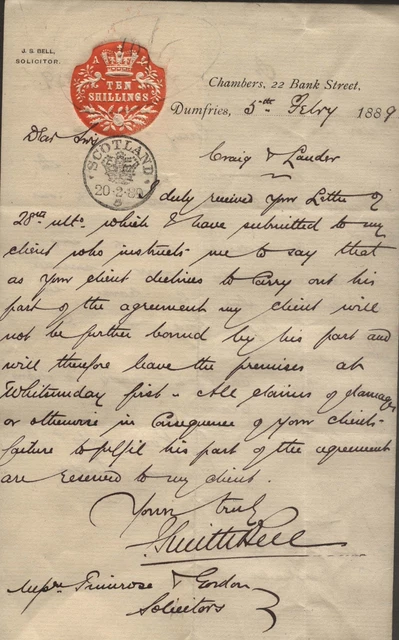 J. S. BELL,
SOLICITOR.
TEN
SHILLINGS
Chambers, 22 Bank Street,
Dumfries, 5th Febry 1889
SCOTLAND
20-2-89
Dear Sirs
Craig & Lauder
I duly received your Letter of
28th ulto. which I have submitted to my
client who instructs me to say that
as your client declines to carry out his
part of the agreement my client will
not be further bound by his part and
will therefore leave the premises at
Whitsunday first. All claims of damages
or otherwise in consequence of your clients
failure to fulfil his part of the agreement
are reserved to my client.
Yours truly
J Smith Bell
Messrs Primrose & Gordon
Solicitors